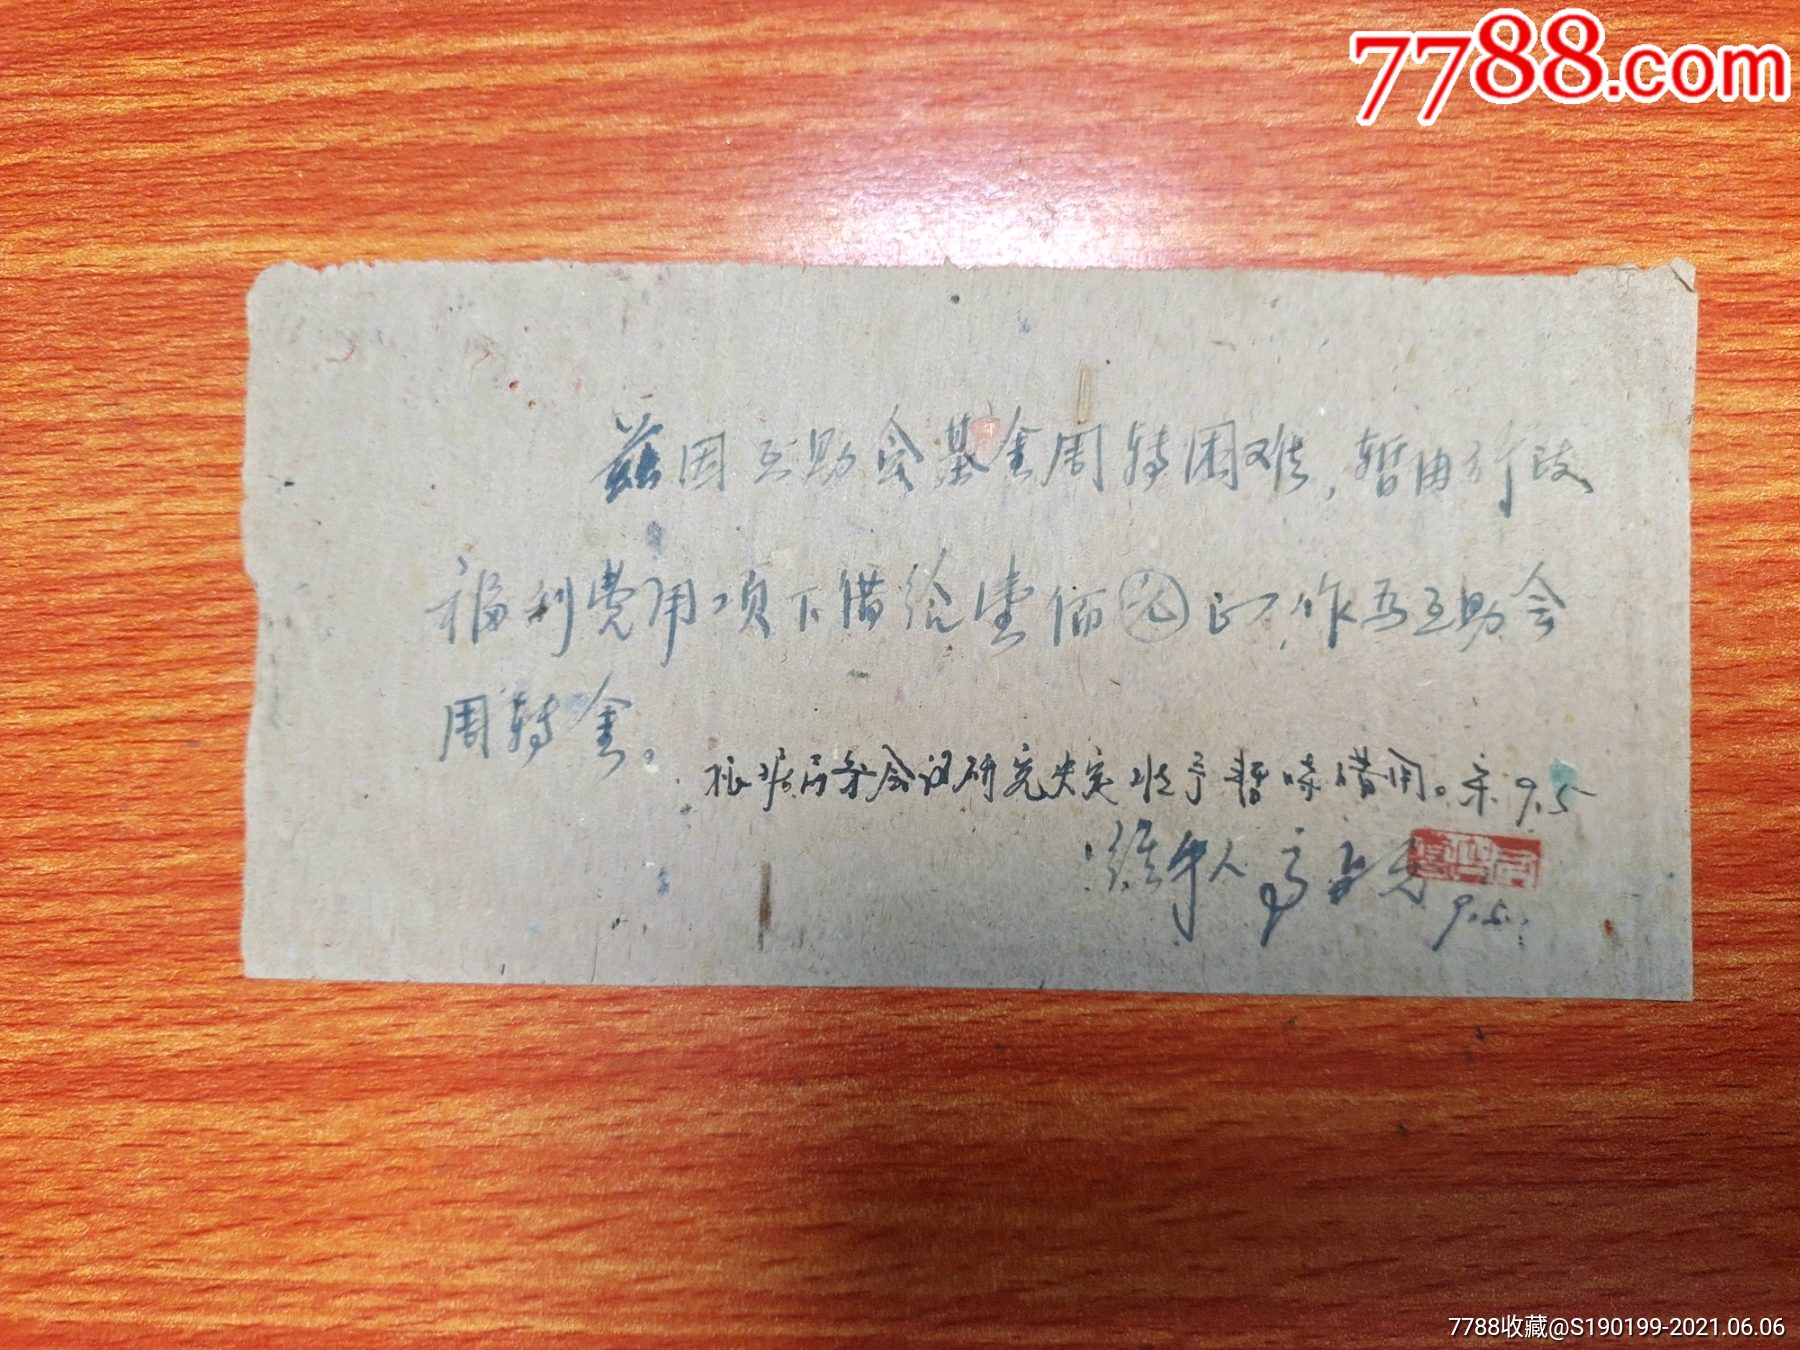 7788.com
兹因互助会基金周转困难，暂由行政
福利费用项下借给壹佰元正，作为互助会
周转金。
根据局务会议研究决定准予暂时借用。宋 9.5
经手人 高 9.5.
7788收藏@S190199-2021.06.06